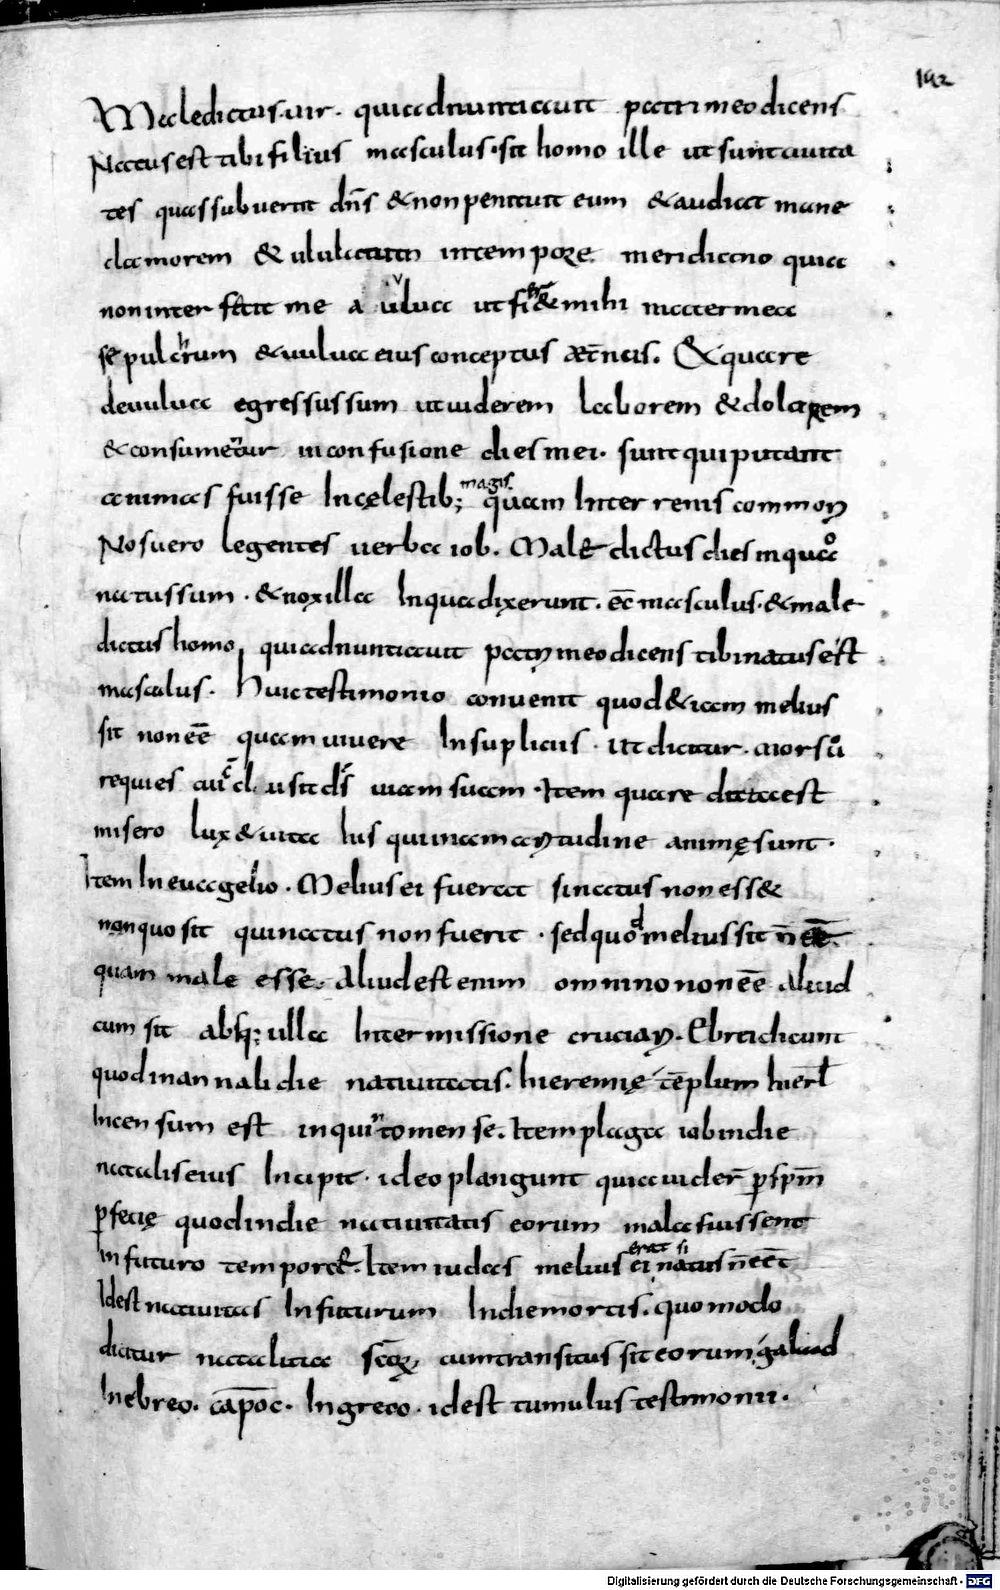 192
Maledictus uir. quia adnuntiauit patri meo dicens
Natus est tibi filius masculus. sit homo ille ut sunt ciuita
tes quas subuertit dn̄s & non penituit eum & audiat mane
clamorem & ululatum in tempore meridiano quia
non inter fecit me a uulua ut fi& mihi mater mea
sepulcrum & uulua eius conceptus æt̄nus. Et quare
de uulua egressus sum ut uiderem laborem & dolorem
& consumer̄tur in confusione dies mei. sunt qui putant
animas fuisse In cęlestib; magis quam Inter renis common
Nos uero legentes uerba iob. Male dictus dies in quo
natus sum. & nox illa In qua dixerunt. ēc masculus. & male
dictus homo, qui adnuntiauit patri meo dicens tibi natus est
masculus. Huic testimonio conuenit quod & iam melius
sit non eē̄ quam uiuere In suplicus. ut dicitur. mors ū
requies cui cl usit dī̄ uiam suam. Item quare data est
misero lux & uita his qui in amaritudine animę sunt.
Item In euuagelio. Melius ei fuerat si natus non ess&
non quo sit qui natus non fuerit. sed quod melius sit n̄ eē̄.
quam male esse. Aliud est enim omnino non eē̄ aliud
cum sit absq; ulla Intermissione cruciari. Ebrei dicunt
quod in annali die natiuitatis. hieremię tēplum hierl̄
Incensum est in quinto mense. Item plaga iob in die
natali seius Incipit. ideo plangunt quia uider̄ p sp̄m
pfecię quod in die natiuitatis eorum mala fuissent
in futuro tempore. Item iudas melius erat ei si natus n̄ eē̄t
Idest natiuitas In futurum In die mortis. quomodo
dicitur natalitia scōꝝ, cum transitus sit eorum. galaad
In ebreo. capōc. In greco. idest tumulus testimonii.
Digitalisierung gefördert durch die Deutsche Forschungsgemeinschaft - DFG